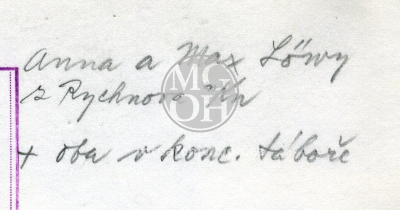 Anna a Max Löwy
z Rychnova n/Kn
+ oba v konc. táboře
MGOH